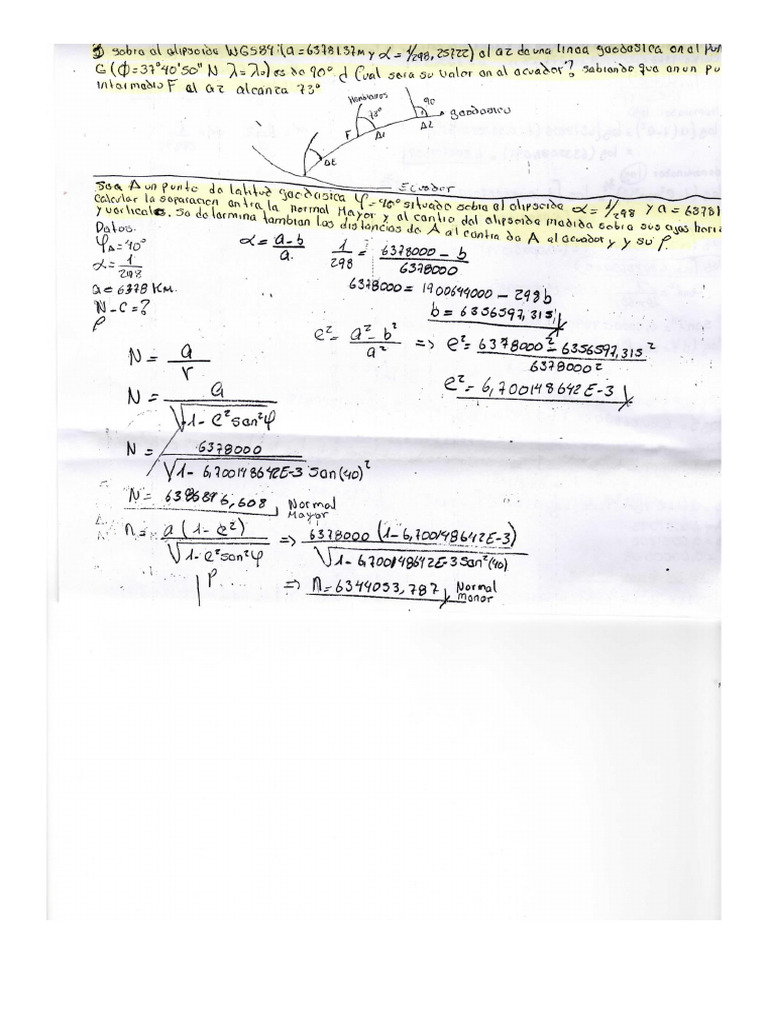 3) sobre el elipsoide WGS84:(a=6378137m y α=1/298,25722) el az de una linea geodesica en el pun
G(Φ=37°40'50" N λ=λ₀) es de 90° ¿Cual sera su valor en el ecuador? sabiendo que en un pu
intermedio F el az alcanza 73°
Meridianos
73°
90
geodesica
F
A1
A2
AE
Ecuador
Sea A un punto de latitud geodesica φ=40° situado sobre el elipsoide α=1/298 y a=63781
calcular la separacion entre la normal Mayor y el centro del elipsoide medida sobre sus ejes hori
y verticales. Se determina tambien las distancias de A al centro de A al ecuador y y su ρ.
Datos.
φA=40°
α=1/298
a=6378 KM.
N-C=?
ρ
α=a-b/a.
1/298 = 6378000-b/6378000
6378000=1900644000-298b
b=6356597,315
e²=a²-b²/a² => e²=6378000²-6356597,315²/6378000²
e²=6,700148642E-3
N=a/r
N=a/√1-e²sen²φ
N=6378000/√1-6,700148642E-3 sen(40)²
N=6386896,608 Normal Mayor
n=a(1-e²)/√1-e²sen²φ => 6378000(1-6,700148642E-3)/√1-6,700148642E-3 sen²(40)
ρ
=> n=6344053,787 Normal menor